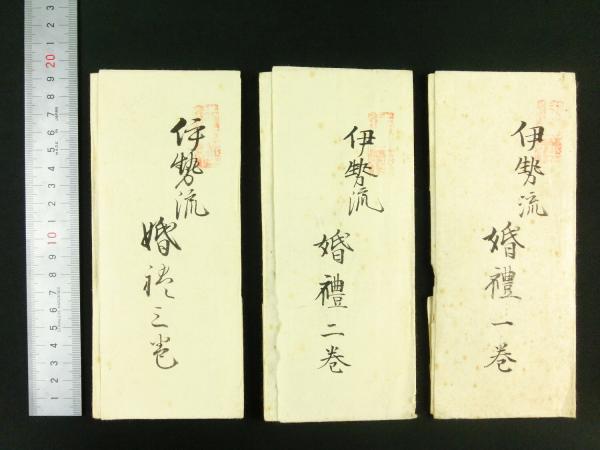 伊勢流 婚禮 一巻
伊勢流 婚禮 二巻
伊勢流 婚礼 三巻
1 2 3 4 5 6 7 8 9 10 1 2 3 4 5 6 7 8 9 20 1 2 3